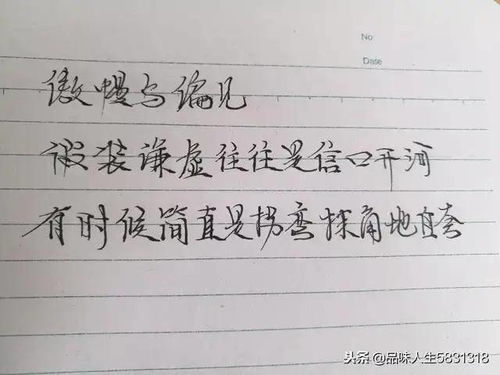 No
Date
傲慢与偏见
假装谦虚往往是信口开河
有时候简直是拐弯抹角地自夸
头条 @品味人生5831318